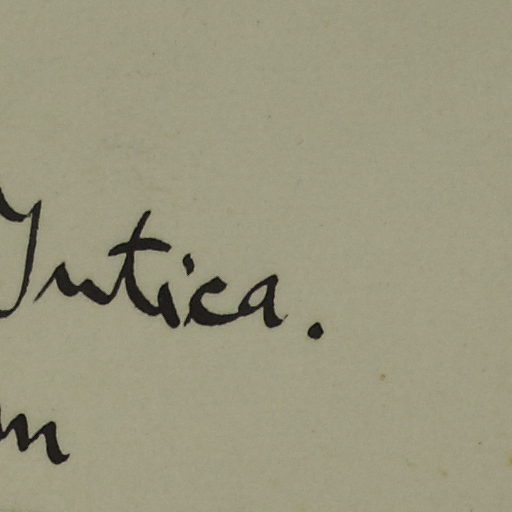 Urtica.
m